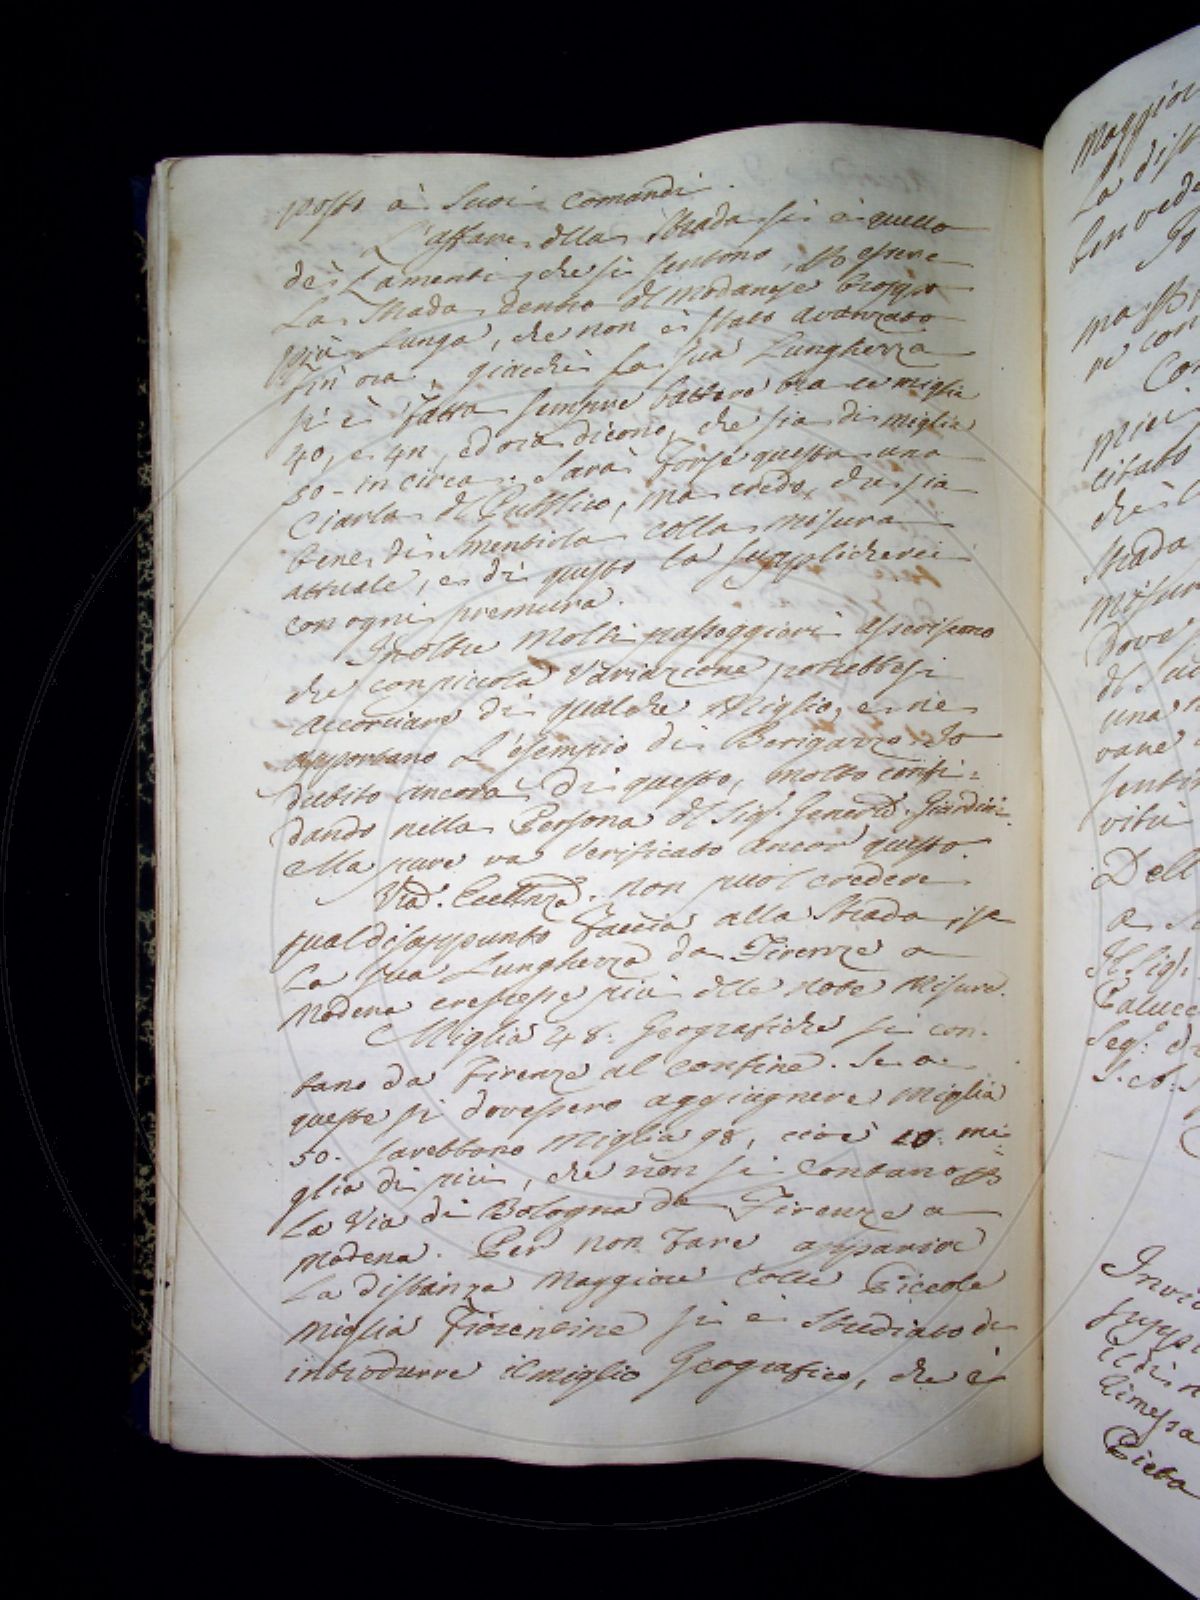 posto à Suoi comandi.
L'affare della Strada si è quello
de' Lamenti, che si sentono, per essere
La Strada dentro del Modanese troppo
più Lunga, che non è stato avanzato
fin ora, giacchè La sua Lunghezza
si è fatta sempre battere tra le miglia
40, e 42, ed ora dicono, che sia di miglia
50 - in circa. Sarà forse questa una
Ciarla del Pubblico, ma credo, che sia
bene di Smentirla colla misura
attuale, e di questo la supplicherei
con ogni premura.
Inoltre Molti passeggieri asseriscono
che con piccola Variazione potrebbesi
accorciare di qualche Miglio, e ne
apportano L'esempio di Barigazzo. Io
dubito ancora di questo, molto confi=
dando nella Persona del Sig.r General Giardini.
Ella pure va Verificato ancor questo.
Vra. Eccellnza. non puol credere
qual disappunto faccia alla Strada, se
La sua Lunghezza da Firenze a
Modena crescesse più delle note Misure.
Miglia 48. Geografiche si con-
tano da Firenze al confine. Se a
queste si dovessero aggiugnere Miglia
50. sarebbono Miglia 98, cioè 10. mi=
glia di più, che non si contano per
La Via di Bologna da Firenze a
Modena. Per non fare apparire
La distanza Maggiore colle Piccole
Miglia Fiorentine si è Studiato di
introdurre il miglio Geografico, che è
Maggior
La dist
ben vede
Io
ma
re con
Con
miei
citato
che
Strada
misur
Dove
una
vane
sentir
vitù
Dell
a
Il Sig.r
Paluc
Seg.
Invi
suppl
rimessa